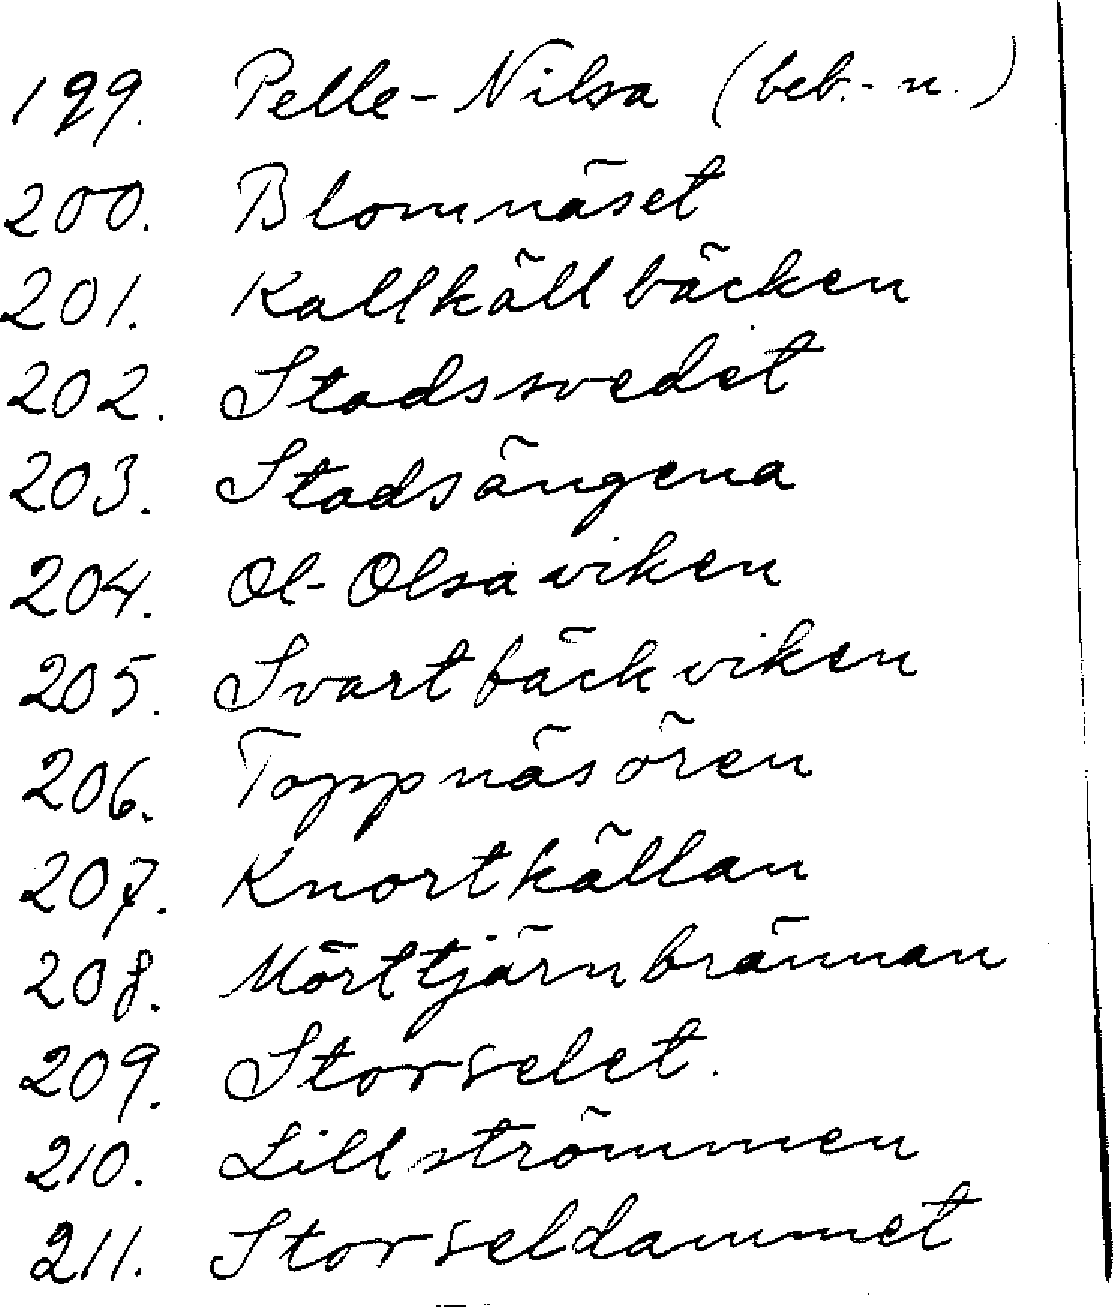 199. Pelle-Nilsa (beb.-n.)
200. Blomnäset
201. Kallkällbäcken
202. Stadssvedet
203. Stadsängena
204. Ol-Olsaviken
205. Svartbäckviken
206. Toppnäsören
207. Knortkällan
208. Mörttjärnbrännan
209. Storselet.
210. Lillströmmen
211. Storseldammet